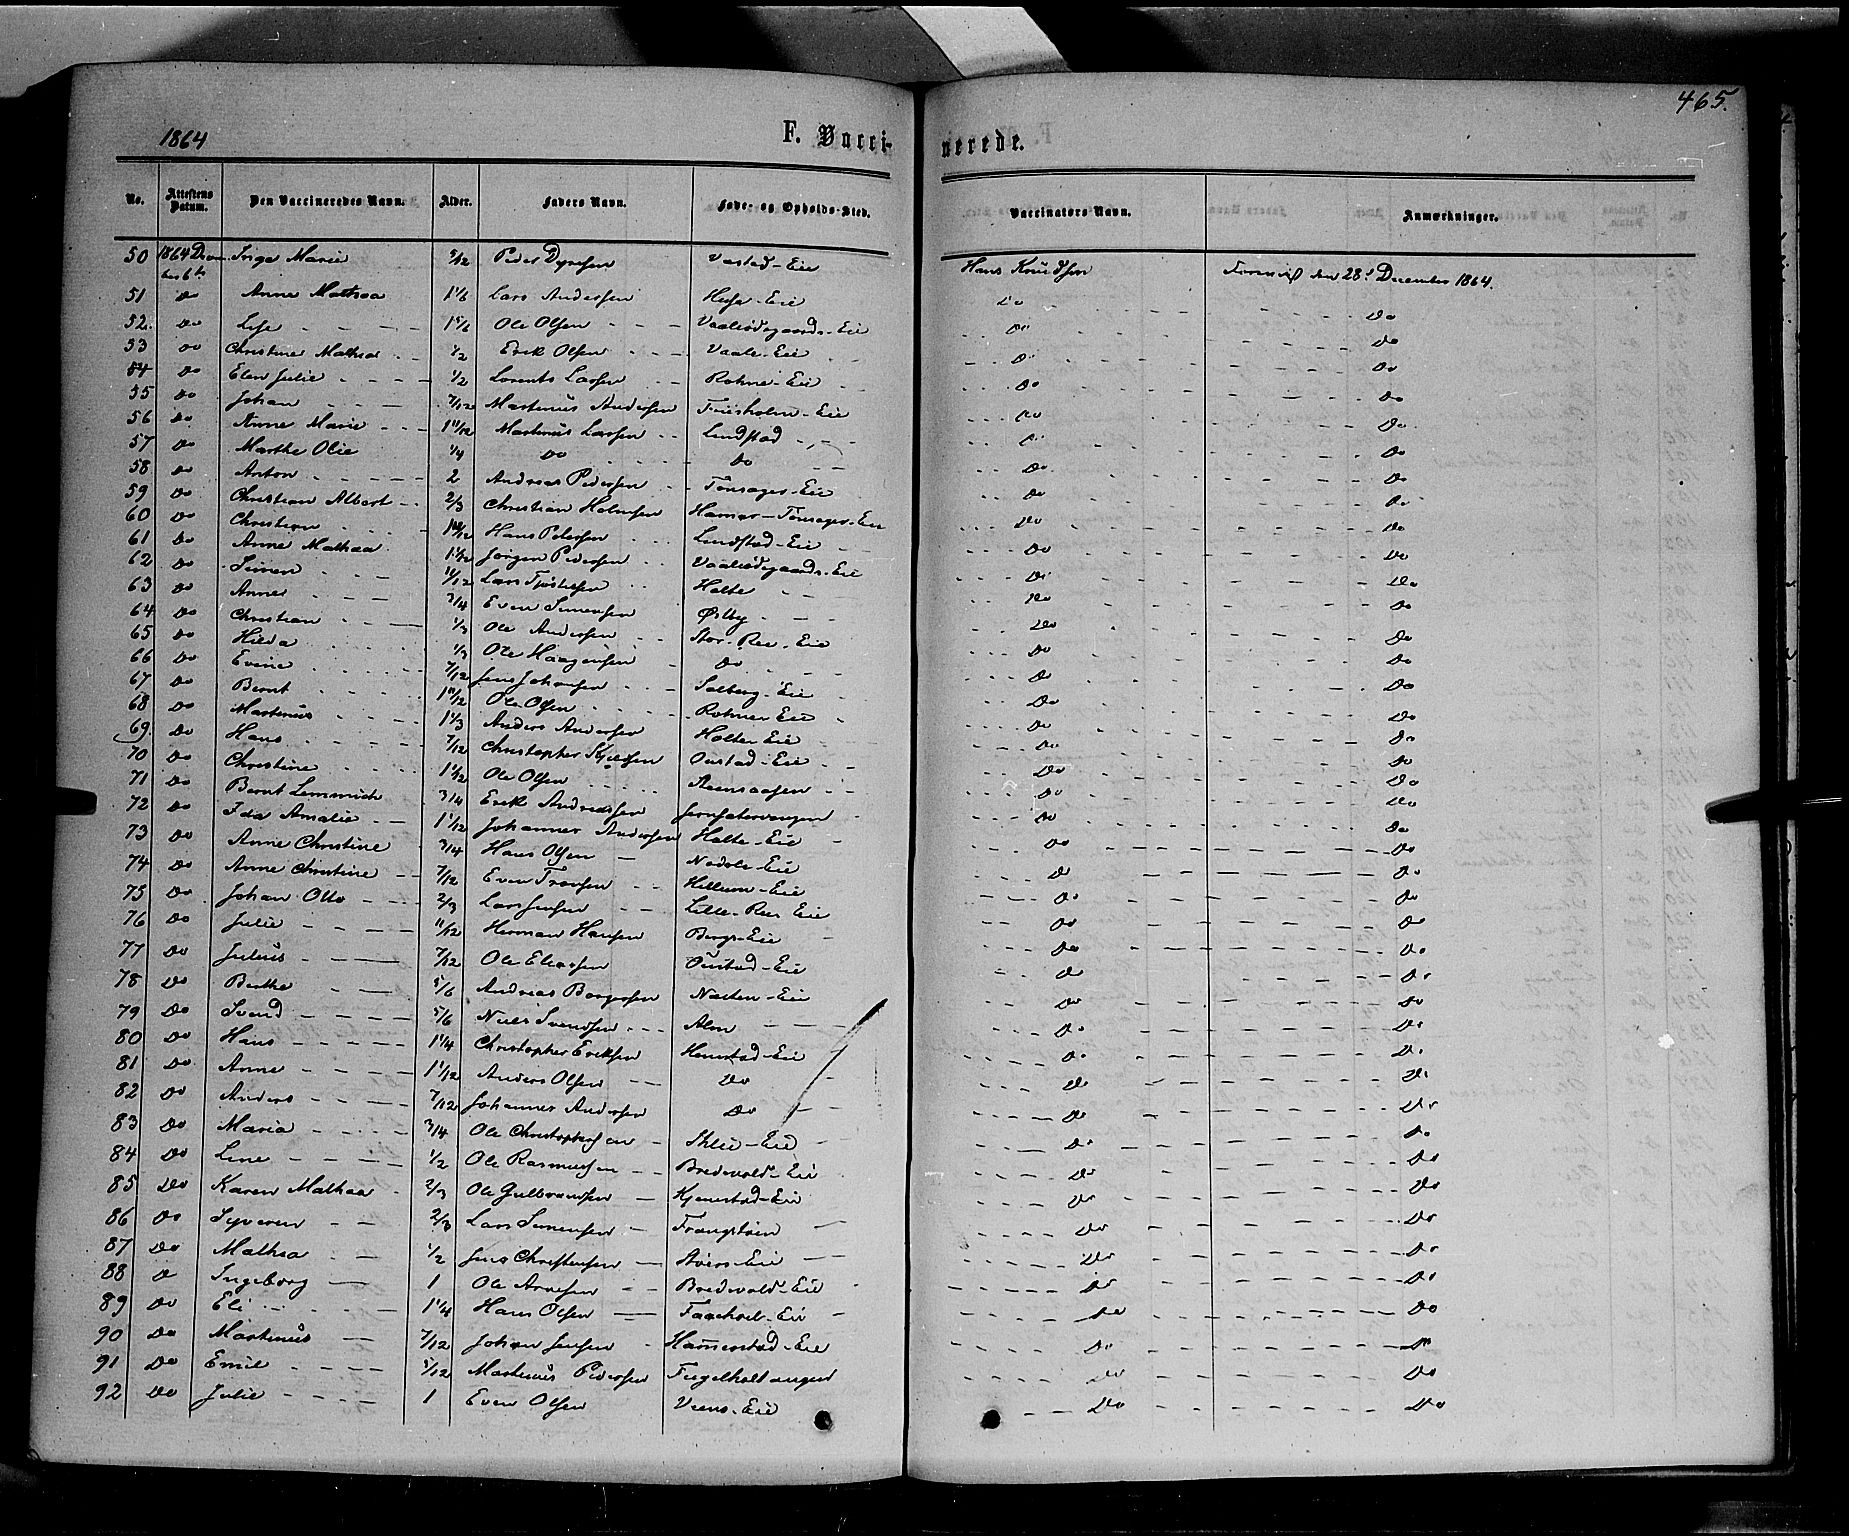 465.
1864 F. Vaccinerede.
No. Attestens Datum. Den Vaccineredes Navn. Alder. Faders Navn. Føde- og Opholds-Sted. Vaccinators Navn. Anmærkninger.
50 1864 Decem-ber 6te Inge Marie 5/12 Peder Dyresen Vestad-Eie Hans Knudsen Forevist den 28de December 1864.
51 Do Anne Mathea 1 1/6 Lars Andersen Eie Do Do
52. Do Lise 1 5/6 Ole Olsen Vaaleødegaards-Eie Do Do
53 Do Christine Mathea 1/2 Erik Olsen Vaale-Eie Do Do
54 Do Elen Julie 1/2 Lorents Larsen Rohne-Eie Do Do
55 Do Johan 7/12 Martinus Andersen Friisholm-Eie Do Do
56 Do Anne Marie 1 11/12 Martinus Larsen Lundstad Do Do
57 Do Marthe Olie 1/4 Do Do Do Do
58 Do Anton 2 Andreas Pedersen Tønsager-Eie Do Do
59 Do Christian Albert 2/3 Christian Halvorsen Hamar-Tønsager-Eie Do Do
60 Do Christian 1 10/12 Hans Petersen Lundstad-Eie Do Do
61 Do Anne Mathea 1 1/12 Jørgen Pedersen Vaaleødegaards-Eie Do Do
62 Do Simen 11/12 Lars Tjøstelsen Holte Do Do
63 Do Anne 3/4 Even Simensen Østby Do Do
64 Do Christian 1/3 Ole Andersen Stor-Ree-Eie Do Do
65 Do Hilda 1/3 Ole Haagensen Do Do Do
66 Do Evine 7/12 Jens Johansen Solberg-Eie Do Do
67 Do Bernt 1 11/12 Ole Olsen Rohne-Eie Do Do
68 Do Martinus 1 1/3 Anders Andersen Holte-Eie Do Do
69. Do Hans 7/12 Christopher Onstad-Eie Do Do
70 Do Christine 1 1/12 Ole Olsen Do Do
71 Do Bernt Lemmich 3/4 Erik Andreassen Do Do
72 Do Ida Amalie 1 1/12 Johannes Andersen Holte-Eie Do Do
73 Do Anne Christine 3/4 Hans Olsen Eie Do Do
74 Do Anne Christine 7/12 Even Torsen Hellum-Eie Do Do
75 Do Johan Otto 2/3 Lars Jensen Lille-Ree Eie Do Do
76 Do Julie 11/12 Herman Hansen Bergs-Eie Do Do
77 Do Julius 7/12 Ole Eliasen Onstad-Eie Do Do
78 Do Berthe 5/6 Andreas Borgersen Eie Do Do
79 Do Svend 5/6 Niels Svendsen Alm Do Do
80 Do Hans 1 1/4 Christopher Eriksen Hemstad-Eie Do Do
81 Do Anne 1 1/12 Anders Olsen Do Do Do
82 Do Anders 7/12 Johannes Andersen Do Do Do
83 Do Maria 3/4 Ole Christophersen Eie Do Do
84 Do Line 1/2 Ole Rasmussen Bredvold-Eie Do Do
85 Do Karen Mathea 2/3 Ole Gulbrandsen Kjemstad-Eie Do Do
86 Do Syveren 2/3 Lars Simensen Do Do
87 Do Mathea 1/2 Jens Christensen Eie Do Do
88 Do Ingeborg 1 Ole Arnesen Bredvold-Eie Do Do
89 Do Eli 1 1/4 Hans Olsen Eie Do Do
90 Do Martinus 7/12 Johan Jensen Hammerstad-Eie Do Do
91 Do Emil 5/12 Martinus Pedersen Do Do
92 Do Julie 1 Even Olsen Viens-Eie Do Do